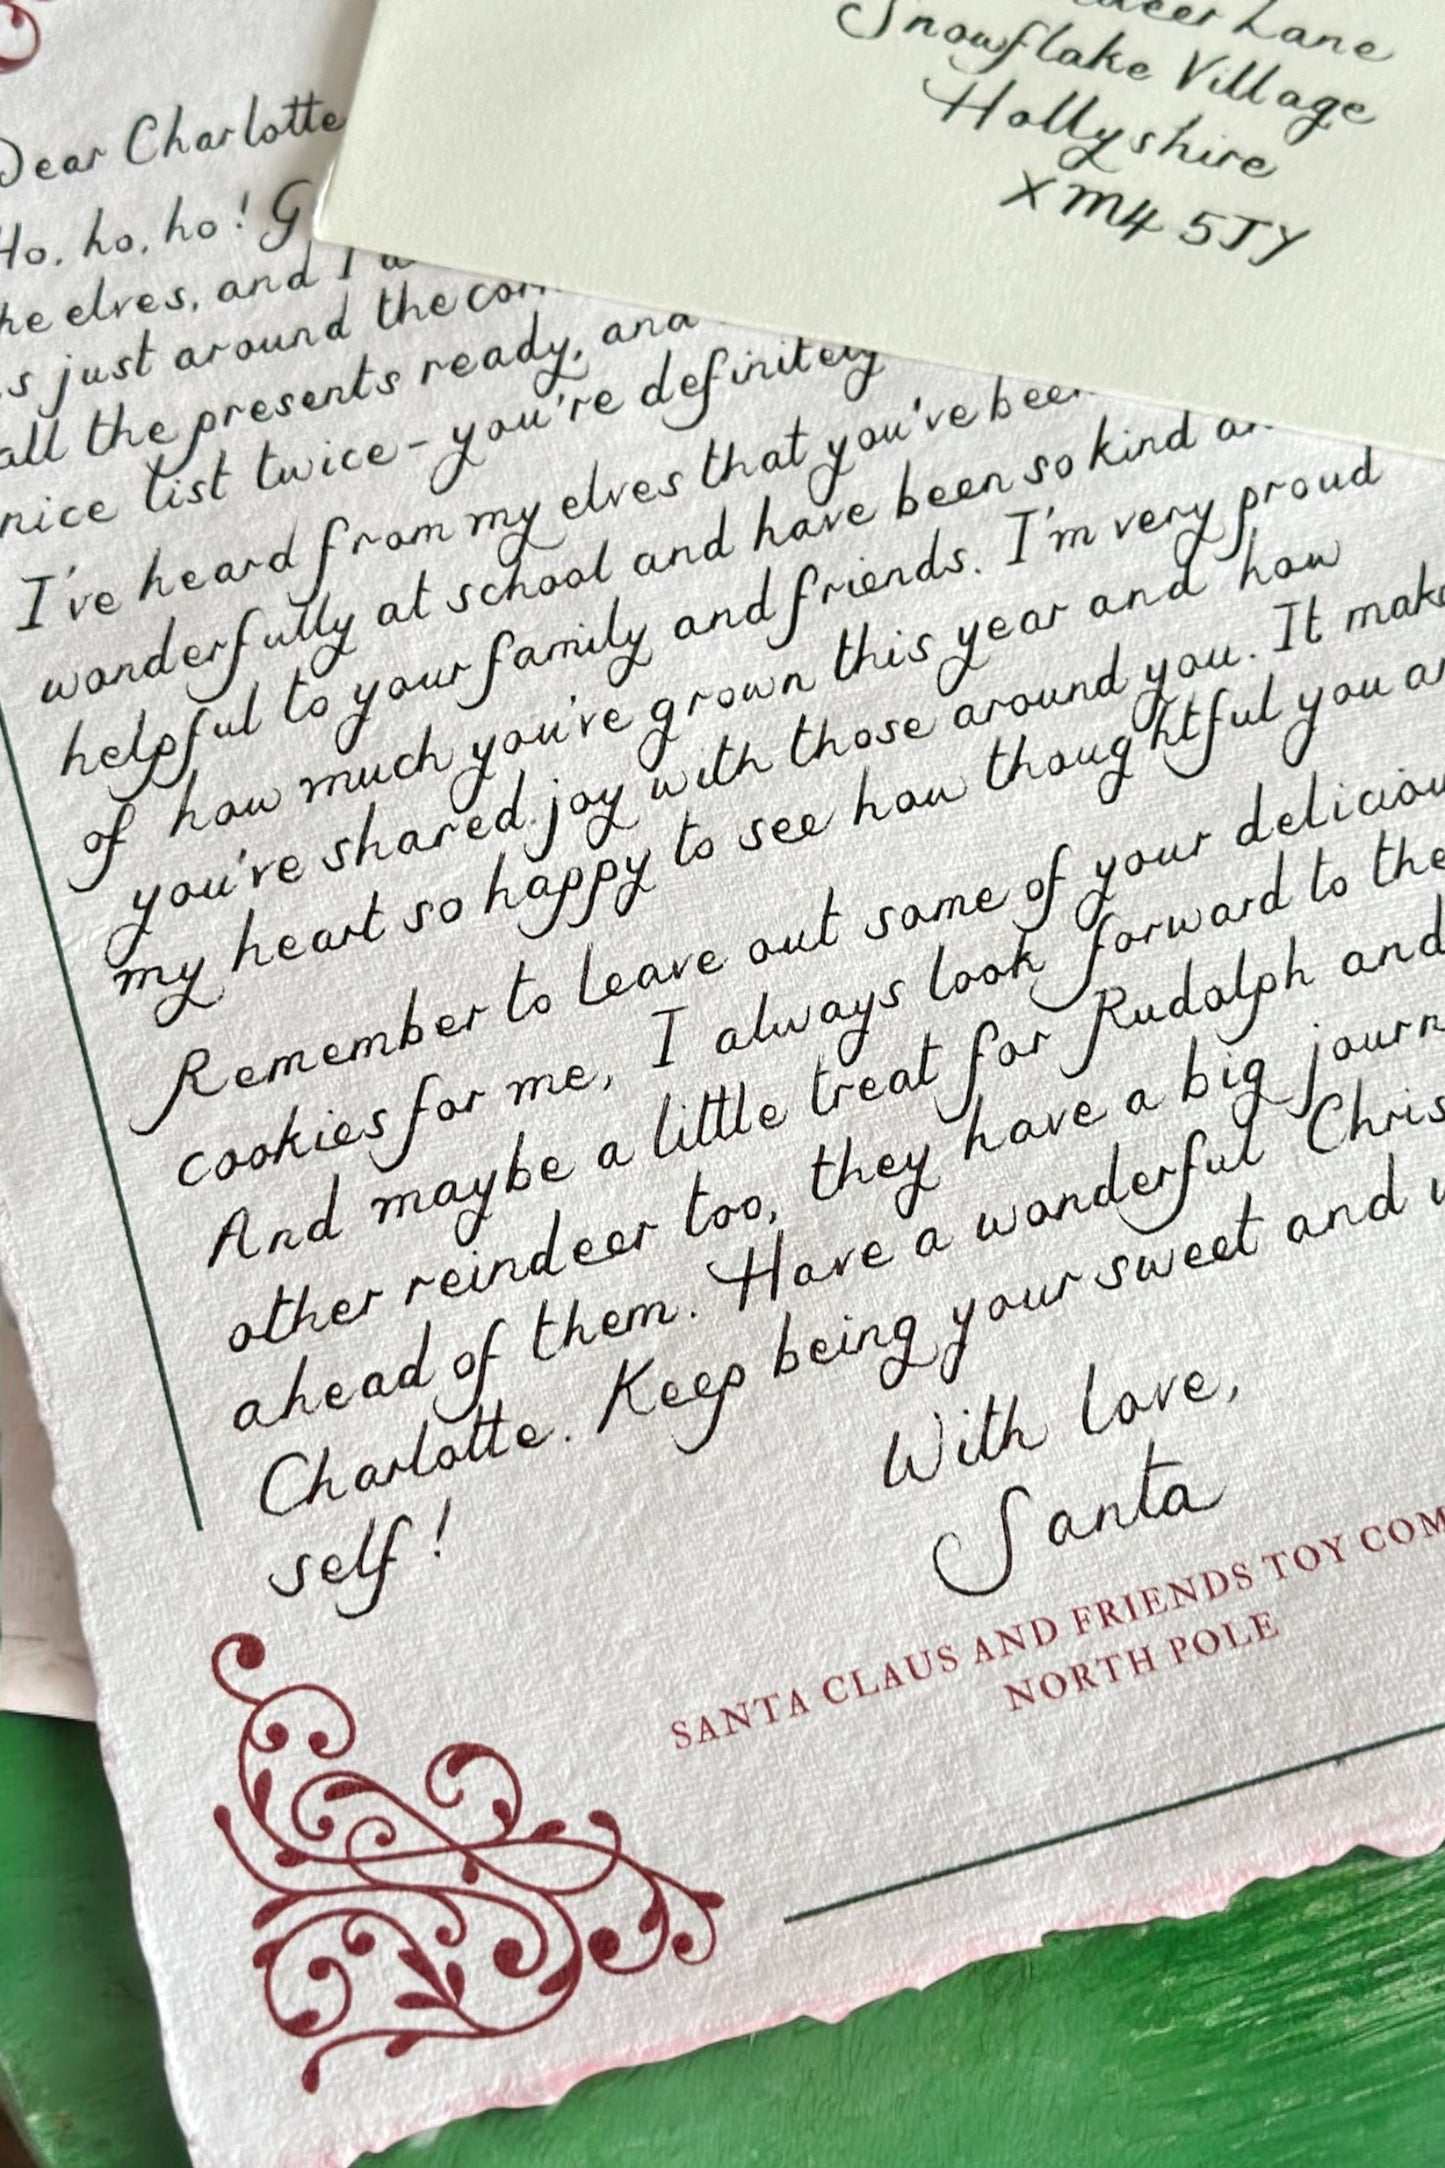 Lane
Snowflake Village
Hollyshire
XM4 5TY
Dear Charlotte
Ho, ho, ho!
the elves, and I
is just around the
all the presents ready, and
nice list twice - you're definitely
I've heard from my elves that you've been
wonderfully at school and have been so kind
helpful to your family and friends. I'm very proud
of how much you've grown this year and how
you've shared joy with those around you. It
my heart so happy to see how thoughtful you
Remember to leave out some of your
cookies for me, I always look forward to
And maybe a little treat for Rudolph and
other reindeer too, they have a big
ahead of them. Have a wonderful
Charlotte. Keep being your sweet and
self!
With love,
Santa
SANTA CLAUS AND FRIENDS TOY
NORTH POLE